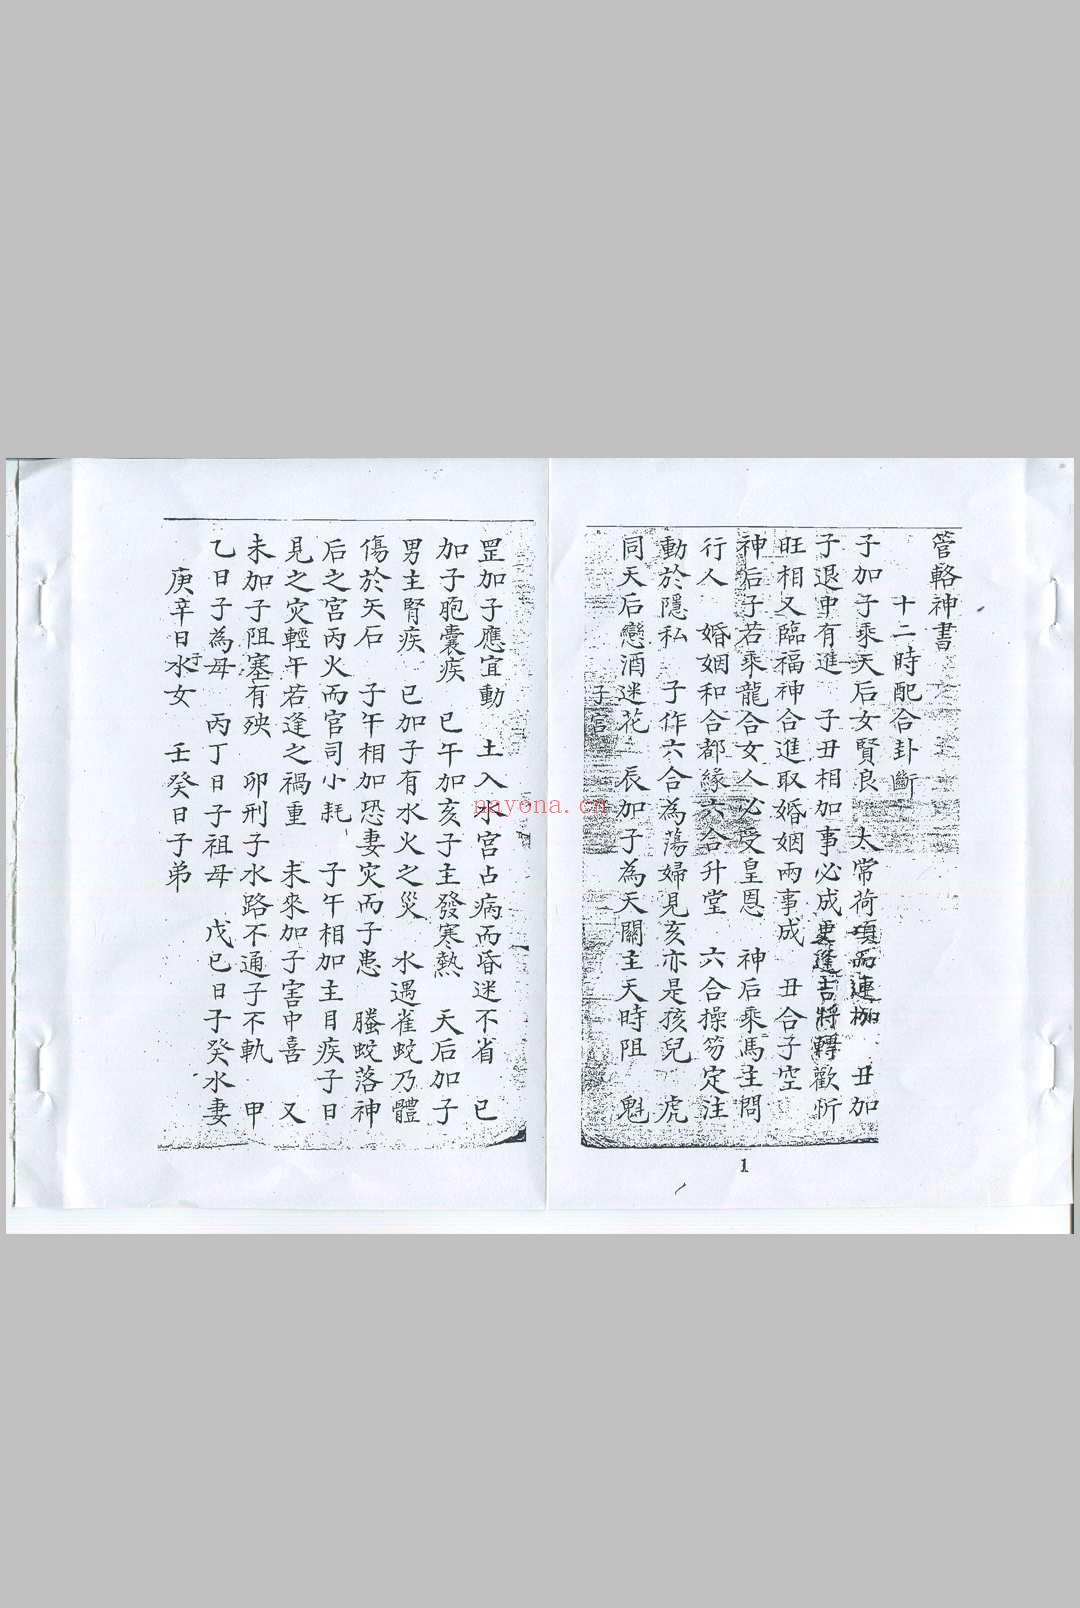 管輅神書
十二時配合卦斷
子加子乘天后女賢良 太常荷項而連枷 丑加
子退中有進 子丑相加事必成更逢吉將轉歡忻
旺相又臨福神合進取婚姻兩事成 丑合子空
神后子若乘龍合女人必受皇恩 神后乘馬主問
行人 婚姻和合都緣六合升堂 六合操笏定注
動於隱私 子作六合為蕩婦見亥亦是孩兒 虎
同天后戀酒迷花 辰加子為天關主天時阻 魁
子宮
罡加子應宜動 土入水宮占病而昏迷不省 巳
加子胞囊疾 巳午加亥子主發寒熱 天后加子
男主腎疾 巳加子有水火之災 水遇雀蛟乃體
傷於矢石 子午相加恐妻灾而子患 螣蛟落神
后之宮丙火而官司小耗 子午相加主目疾子日
見之灾輕午若逢之禍重 未來加子害中喜 又
未加子阻塞有殃 卯刑子水路不通子不軌 甲
乙日子為母 丙丁日子祖母 戊己日子癸水妻
庚辛日水女 壬癸日子弟
子
nnyona.cn
1